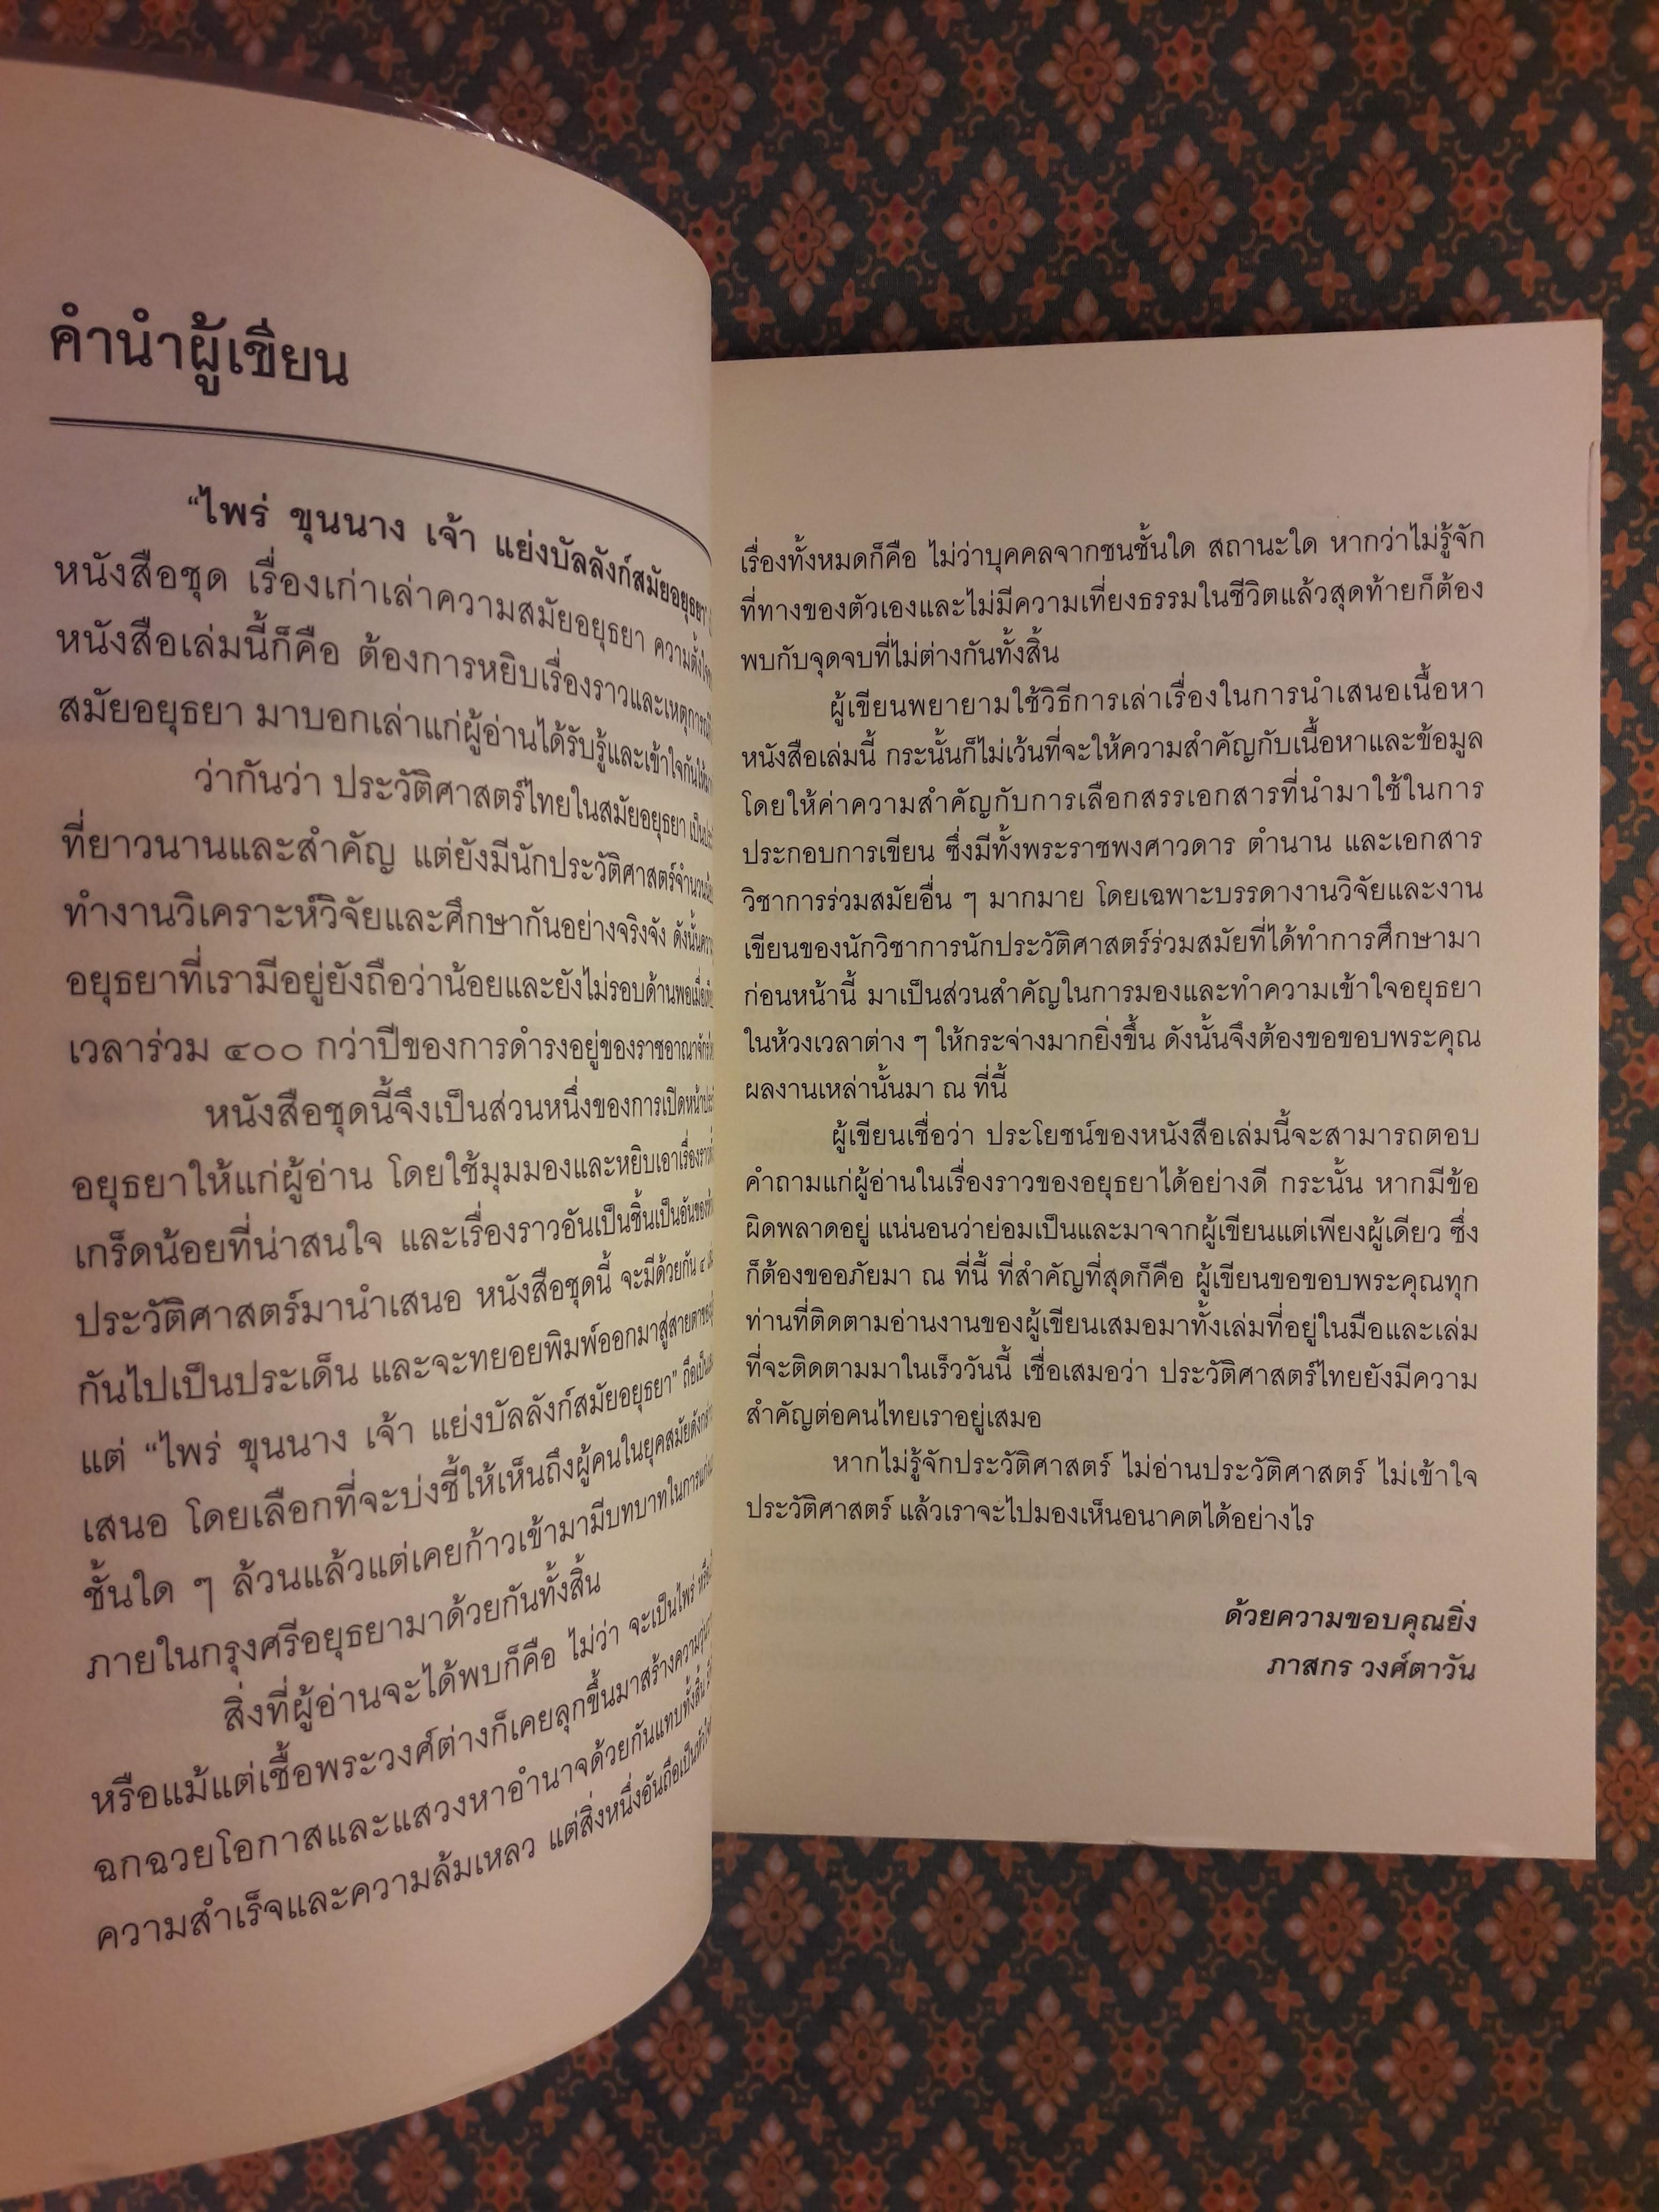 คำนำผู้เขียน
“ไพร่ ขุนนาง เจ้า แย่งบัลลังก์สมัยอยุธยา
หนังสือชุด เรื่องเก่าเล่าความสมัยอยุธยา
หนังสือเล่มนี้ก็คือ ต้องการหยิบเรื่องราวและเหตุการณ์
สมัยอยุธยา มาบอกเล่าแก่ผู้อ่านได้รับรู้และเข้าใจกัน
ว่ากันว่า ประวัติศาสตร์ไทยในสมัยอยุธยา
ที่ยาวนานและสำคัญ แต่ยังมีนักประวัติศาสตร์
ทำงานวิเคราะห์วิจัยและศึกษากันอย่างจริงจัง
อยุธยาที่เรามีอยู่ยังถือว่าน้อยและยังไม่รอบด้านพอ
เวลาร่วม ๔๐๐ กว่าปีของการดำรงอยู่ของราชอาณาจักร
หนังสือชุดนี้จึงเป็นส่วนหนึ่งของการเปิดหน้า
อยุธยาให้แก่ผู้อ่าน โดยใช้มุมมองและหยิบเอาเรื่องราว
เกร็ดน้อยที่น่าสนใจ และเรื่องราวอันเป็นชิ้นเป็นอัน
ประวัติศาสตร์มานำเสนอ หนังสือชุดนี้ จะมีด้วยกัน
กันไปเป็นประเด็น และจะทยอยพิมพ์ออกมาสู่สายตา
แต่ “ไพร่ ขุนนาง เจ้า แย่งบัลลังก์สมัยอยุธยา”
เสนอ โดยเลือกที่จะบ่งชี้ให้เห็นถึงผู้คนในยุคสมัย
ชั้นใด ๆ ล้วนแล้วแต่เคยก้าวเข้ามามีบทบาทในการ
ภายในกรุงศรีอยุธยามาด้วยกันทั้งสิ้น
สิ่งที่ผู้อ่านจะได้พบก็คือ ไม่ว่า จะเป็นไพร่
หรือแม้แต่เชื้อพระวงศ์ต่างก็เคยลุกขึ้นมาสร้างความ
ฉกฉวยโอกาสและแสวงหาอำนาจด้วยกันแทบทั้งสิ้น
ความสำเร็จและความล้มเหลว แต่สิ่งหนึ่งอันถือเป็น
เรื่องทั้งหมดก็คือ ไม่ว่าบุคคลจากชนชั้นใด สถานะใด หากว่าไม่รู้จัก
ที่ทางของตัวเองและไม่มีความเที่ยงธรรมในชีวิตแล้วสุดท้ายก็ต้อง
พบกับจุดจบที่ไม่ต่างกันทั้งสิ้น
ผู้เขียนพยายามใช้วิธีการเล่าเรื่องในการนำเสนอเนื้อหา
หนังสือเล่มนี้ กระนั้นก็ไม่เว้นที่จะให้ความสำคัญกับเนื้อหาและข้อมูล
โดยให้ค่าความสำคัญกับการเลือกสรรเอกสารที่นำมาใช้ในการ
ประกอบการเขียน ซึ่งมีทั้งพระราชพงศาวดาร ตำนาน และเอกสาร
วิชาการร่วมสมัยอื่น ๆ มากมาย โดยเฉพาะบรรดางานวิจัยและงาน
เขียนของนักวิชาการนักประวัติศาสตร์ร่วมสมัยที่ได้ทำการศึกษามา
ก่อนหน้านี้ มาเป็นส่วนสำคัญในการมองและทำความเข้าใจอยุธยา
ในห้วงเวลาต่าง ๆ ให้กระจ่างมากยิ่งขึ้น ดังนั้นจึงต้องขอขอบพระคุณ
ผลงานเหล่านั้นมา ณ ที่นี้
ผู้เขียนเชื่อว่า ประโยชน์ของหนังสือเล่มนี้จะสามารถตอบ
คำถามแก่ผู้อ่านในเรื่องราวของอยุธยาได้อย่างดี กระนั้น หากมีข้อ
ผิดพลาดอยู่ แน่นอนว่าย่อมเป็นและมาจากผู้เขียนแต่เพียงผู้เดียว ซึ่ง
ก็ต้องขออภัยมา ณ ที่นี้ ที่สำคัญที่สุดก็คือ ผู้เขียนขอขอบพระคุณทุก
ท่านที่ติดตามอ่านงานของผู้เขียนเสมอมาทั้งเล่มที่อยู่ในมือและเล่ม
ที่จะติดตามมาในเร็ววันนี้ เชื่อเสมอว่า ประวัติศาสตร์ไทยยังมีความ
สำคัญต่อคนไทยเราอยู่เสมอ
หากไม่รู้จักประวัติศาสตร์ ไม่อ่านประวัติศาสตร์ ไม่เข้าใจ
ประวัติศาสตร์ แล้วเราจะไปมองเห็นอนาคตได้อย่างไร
ด้วยความขอบคุณยิ่ง
ภาสกร วงศ์ตาวัน